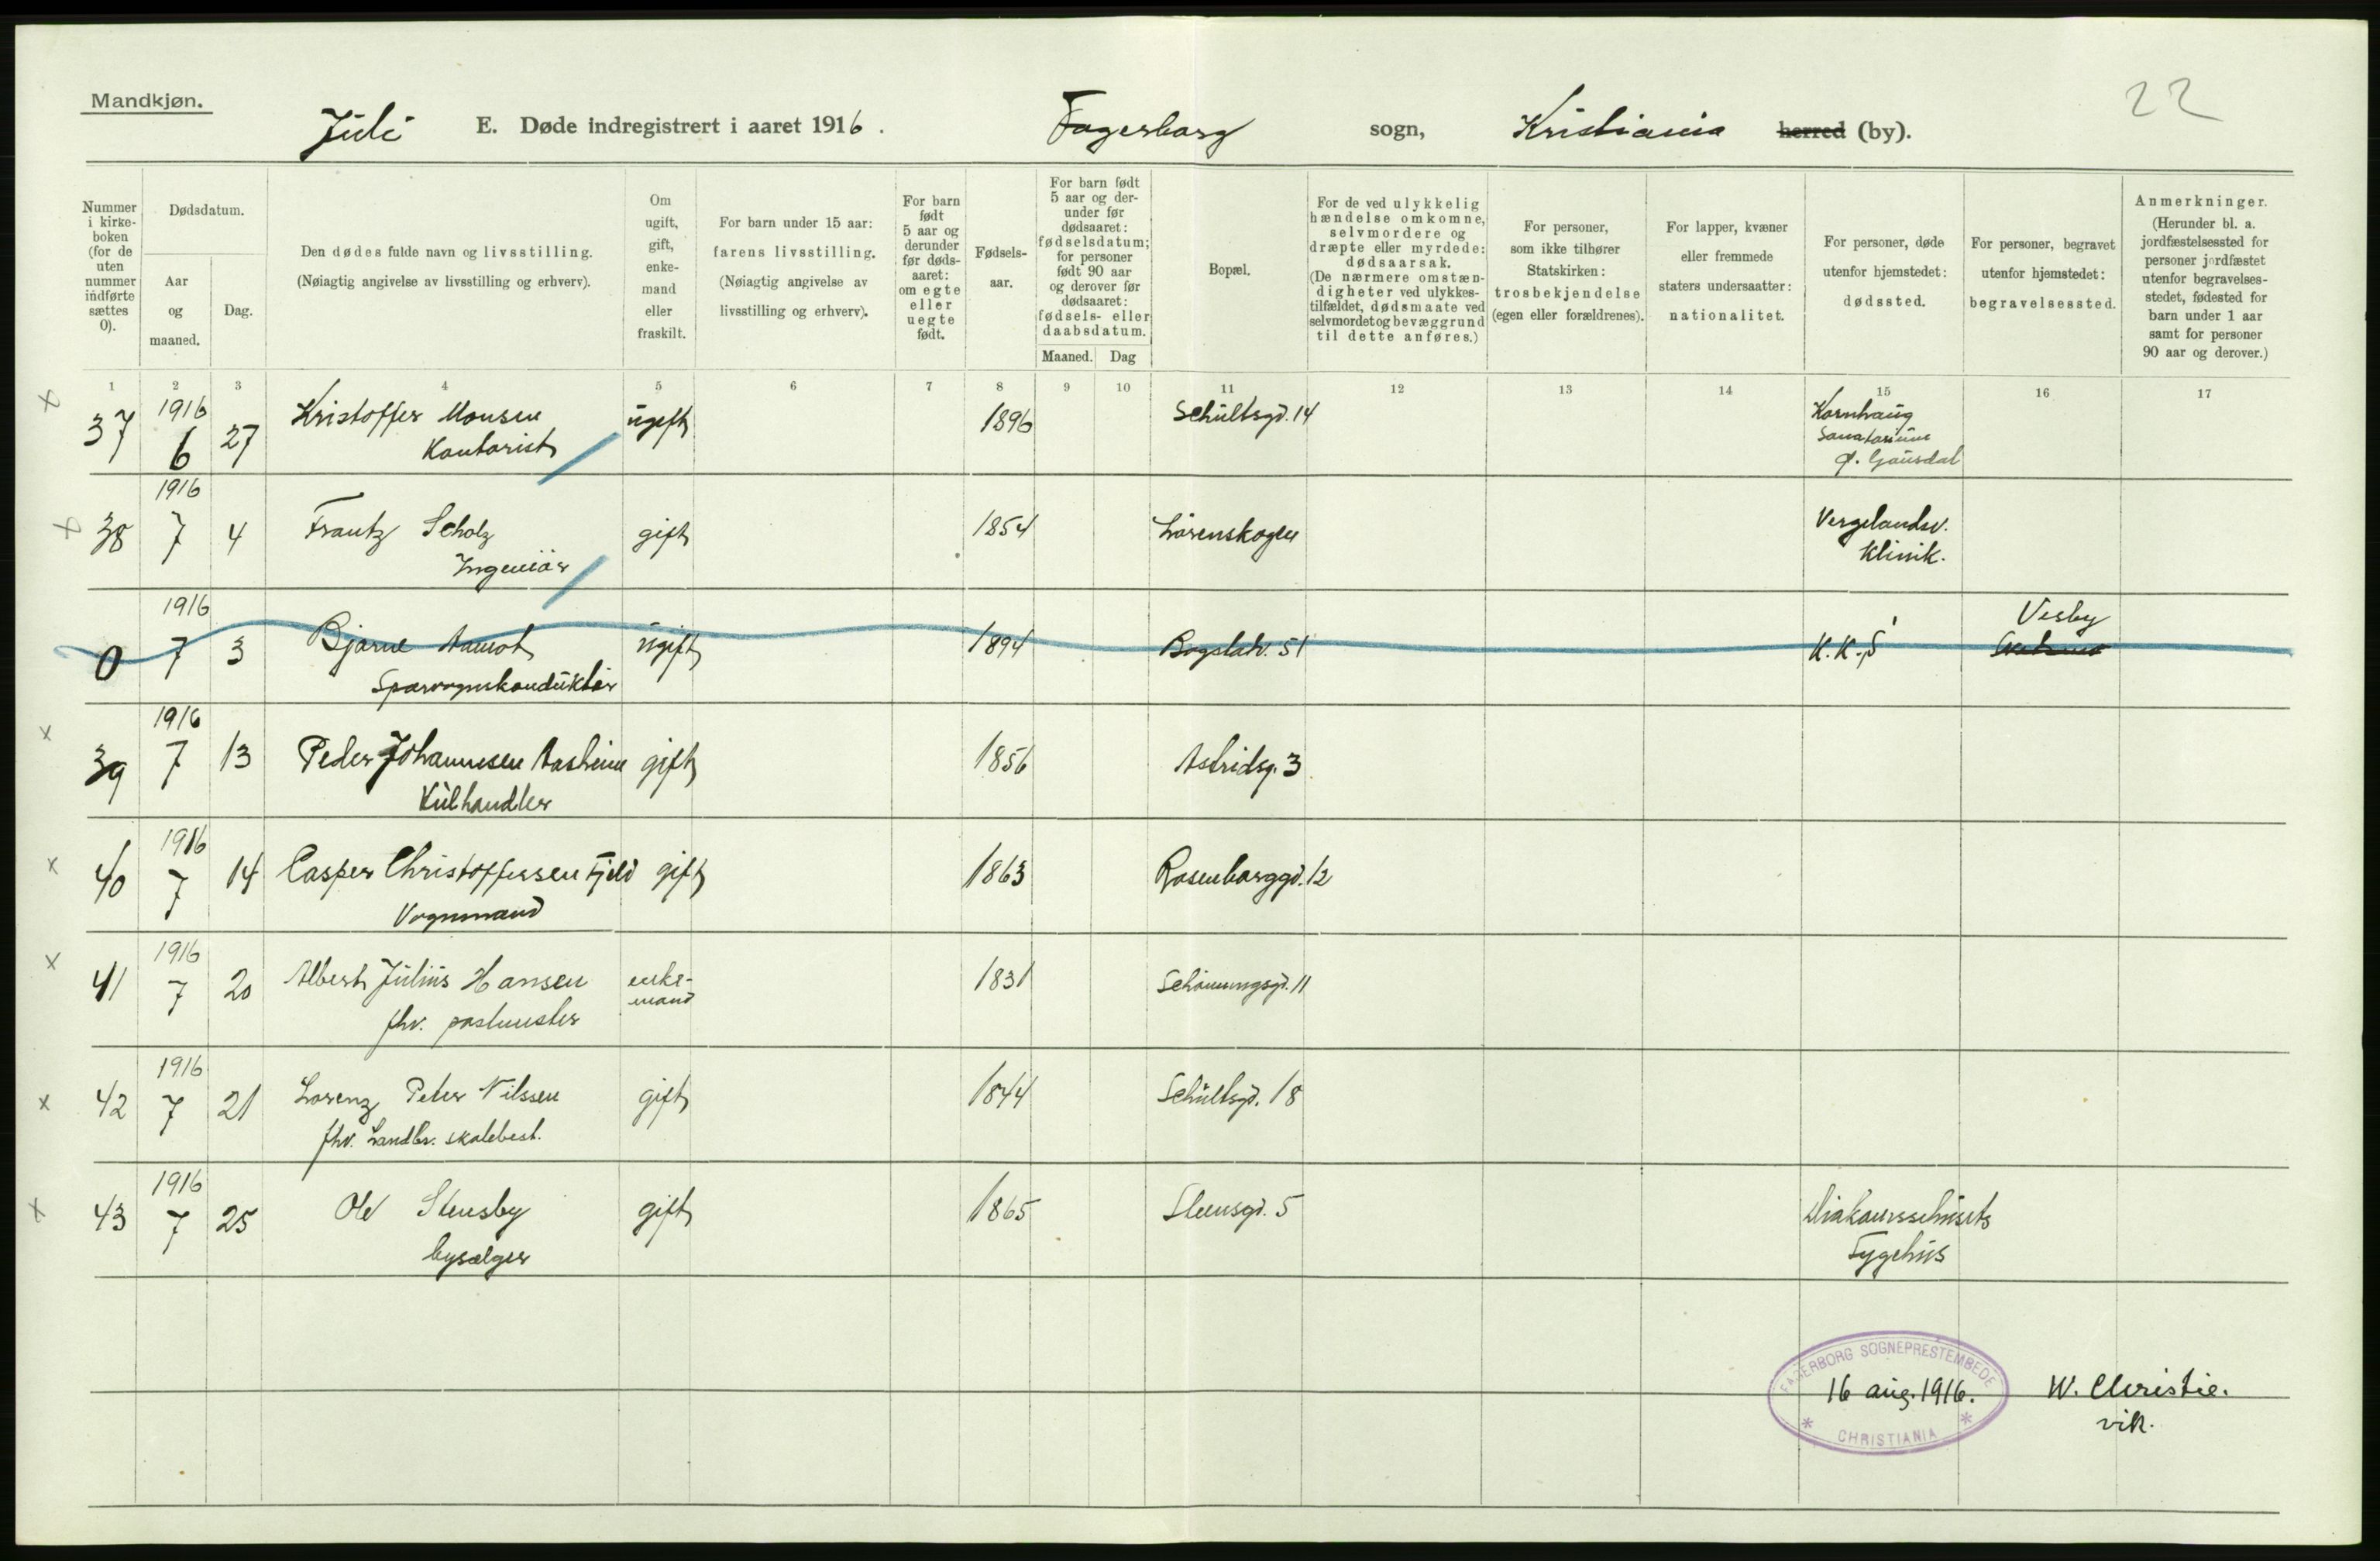 22
Mandkjøn.
Juli E. Døde indregistrert i aaret 1916. Fagerborg sogn, Kristiania herred (by).
Nummer i kirke- boken (for de uten nummer indførte sættes 0).
Dødsdatum.
Aar og maaned.
Dag.
Den dødes fulde navn og livsstilling.
(Nøiagtig angivelse av livsstilling og erhverv).
Om ugift, gift, enke- mand eller fraskilt.
For barn under 15 aar: farens livsstilling.
(Nøiagtig angivelse av livsstilling og erhverv).
For barn født 5 aar og derunder før døds- aaret: om egte eller uegte født.
Fødsels- aar.
For barn født 5 aar og der- under før dødsaaret: fødselsdatum; for personer født 90 aar og derover før dødsaaret: fødsels- eller daabsdatum.
Maaned. Dag
Bopæl.
For de ved ulykkelig hændelse omkomne, selvmordere og dræpte eller myrdede: dødsaarsak.
(De nærmere omstæn- digheter ved ulykkes- tilfældet, dødsmaate ved selvmordet og bevæggrund til dette anføres.)
For personer, som ikke tilhører Statskirken: trosbekjendelse (egen eller forældrenes).
For lapper, kvæner eller fremmede staters undersaatter: nationalitet.
For personer, døde utenfor hjemstedet: dødssted.
For personer, begravet utenfor hjemstedet: begravelsessted.
Anmerkninger.
(Herunder bl. a. jordfæstelsessted for personer jordfæstet utenfor begravelses- stedet, fødested for barn under 1 aar samt for personer 90 aar og derover.)
1 2 3 4 5 6 7 8 9 10 11 12 13 14 15 16 17
x 37 1916 6 27 Kristoffer Monsen ugift 1896 Schultsgd. 14 Kornhaug
Kontorist Sanatorium
Gausdal
x 38 1916 7 4 Frantz Scholz gift 1854 Lørenskogen Vergelandsv.
Ingeniør Klinik.
0 1916 7 3 Bjarne Aamot ugift 1894 Bogstadv. 51 K.K.S Vesby
Sporvognskonduktør
x 39 1916 7 13 Peder Johannesen Aasheim gift 1856 Astridsg. 3
Kulhandler
x 40 1916 7 14 Casper Christoffersen Fjeld gift 1863 Rosenborggd. 12
Vognmand
x 41 1916 7 20 Albert Julius Hansen enke- mand 1831 Schønningsgd. 11
fhv. postmester
x 42 1916 7 21 Lorenz Peter Nilssen gift 1844 Schultsgd. 18
fhv. Landbr. skolebest.
x 43 1916 7 25 Ole Stensby gift 1865 Stensgd. 5 Diakonissehusets
bysælger Sygehus
FAGERBORG SOGNEPRESTEMBEDE
16 aug. 1916. W. Christie.
vik.
* CHRISTIANIA *